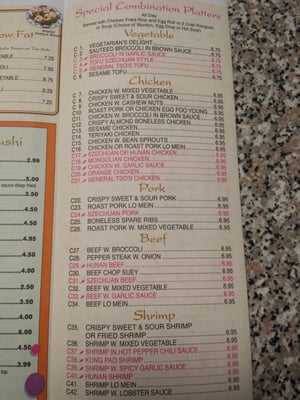 Special Combination Platters
All Day
Served with Chicken Fried Rice and Egg Roll or 2 Crab Rangoon
or Soup (Choice of Wonton, Egg Drop or Hot Sour)
Vegetable
C 1. VEGETARIAN'S DELIGHT
C 2. SAUTEED BROCCOLI IN BROWN SAUCE 6.75
C 3. BROCCOLI IN GARLIC SAUCE 6.75
C 4. TOFU SZECHUAN STYLE 6.75
C 5. GENERAL TSO'S TOFU 6.75
C 6. SESAME TOFU
Chicken
C 7. CHICKEN W. MIXED VEGETABLE 6.95
C 8. CRISPY SWEET & SOUR CHICKEN 6.95
C 9. CHICKEN W. CASHEW NUTS 6.95
C10. ROAST PORK OR CHICKEN EGG FOO YOUNG 6.95
C11. CHICKEN W. BROCCOLI IN BROWN SAUCE 6.95
C12. CRISPY ALMOND BONELESS CHICKEN 6.95
C13. SESAME CHICKEN 6.95
C14. TERIYAKI CHICKEN 6.95
C15. CHICKEN W. BEAN SPROUTS 6.95
C16. CHICKEN OR ROAST PORK LO MEIN 6.95
C17. SZECHUAN OR HUNAN CHICKEN 6.95
C18. MONGOLIAN CHICKEN 6.95
C19. CHICKEN W. GARLIC SAUCE 6.95
C20. ORANGE CHICKEN 6.95
C21. GENERAL TSO'S CHICKEN 6.95
Pork
C22. CRISPY SWEET & SOUR PORK 6.95
C23. ROAST PORK LO MEIN 6.95
C24. SZECHUAN PORK 6.95
C25. BONELESS SPARE RIBS 6.95
C26. ROAST PORK W. MIXED VEGETABLE 6.95
Beef
C27. BEEF W. BROCCOLI 6.95
C28. PEPPER STEAK W. ONION 6.95
C29. HUNAN BEEF 6.95
C30. BEEF CHOP SUEY 6.95
C31. SZECHUAN BEEF 6.95
C32. BEEF W. MIXED VEGETABLE 6.95
C33. BEEF W. GARLIC SAUCE 6.95
C34. BEEF LO MEIN 6.95
Shrimp
C35. CRISPY SWEET & SOUR SHRIMP
OR FRIED SHRIMP 6.95
C36. SHRIMP W. MIXED VEGETABLE 6.95
C37. SHRIMP IN HOT PEPPER CHILI SAUCE 6.95
C38. KUNG PAO SHRIMP 6.95
C39. SHRIMP W. SPICY GARLIC SAUCE 6.95
C40. HUNAN SHRIMP 6.95
C41. SHRIMP LO MEIN 6.95
C42. SHRIMP W. LOBSTER SAUCE 6.95
ow Fat
7.25
7.25
2.99
5.00
sauce deep fried
3.50
4.50
4.95
4.50
4.00
3.50
5.00
4.50
3.99